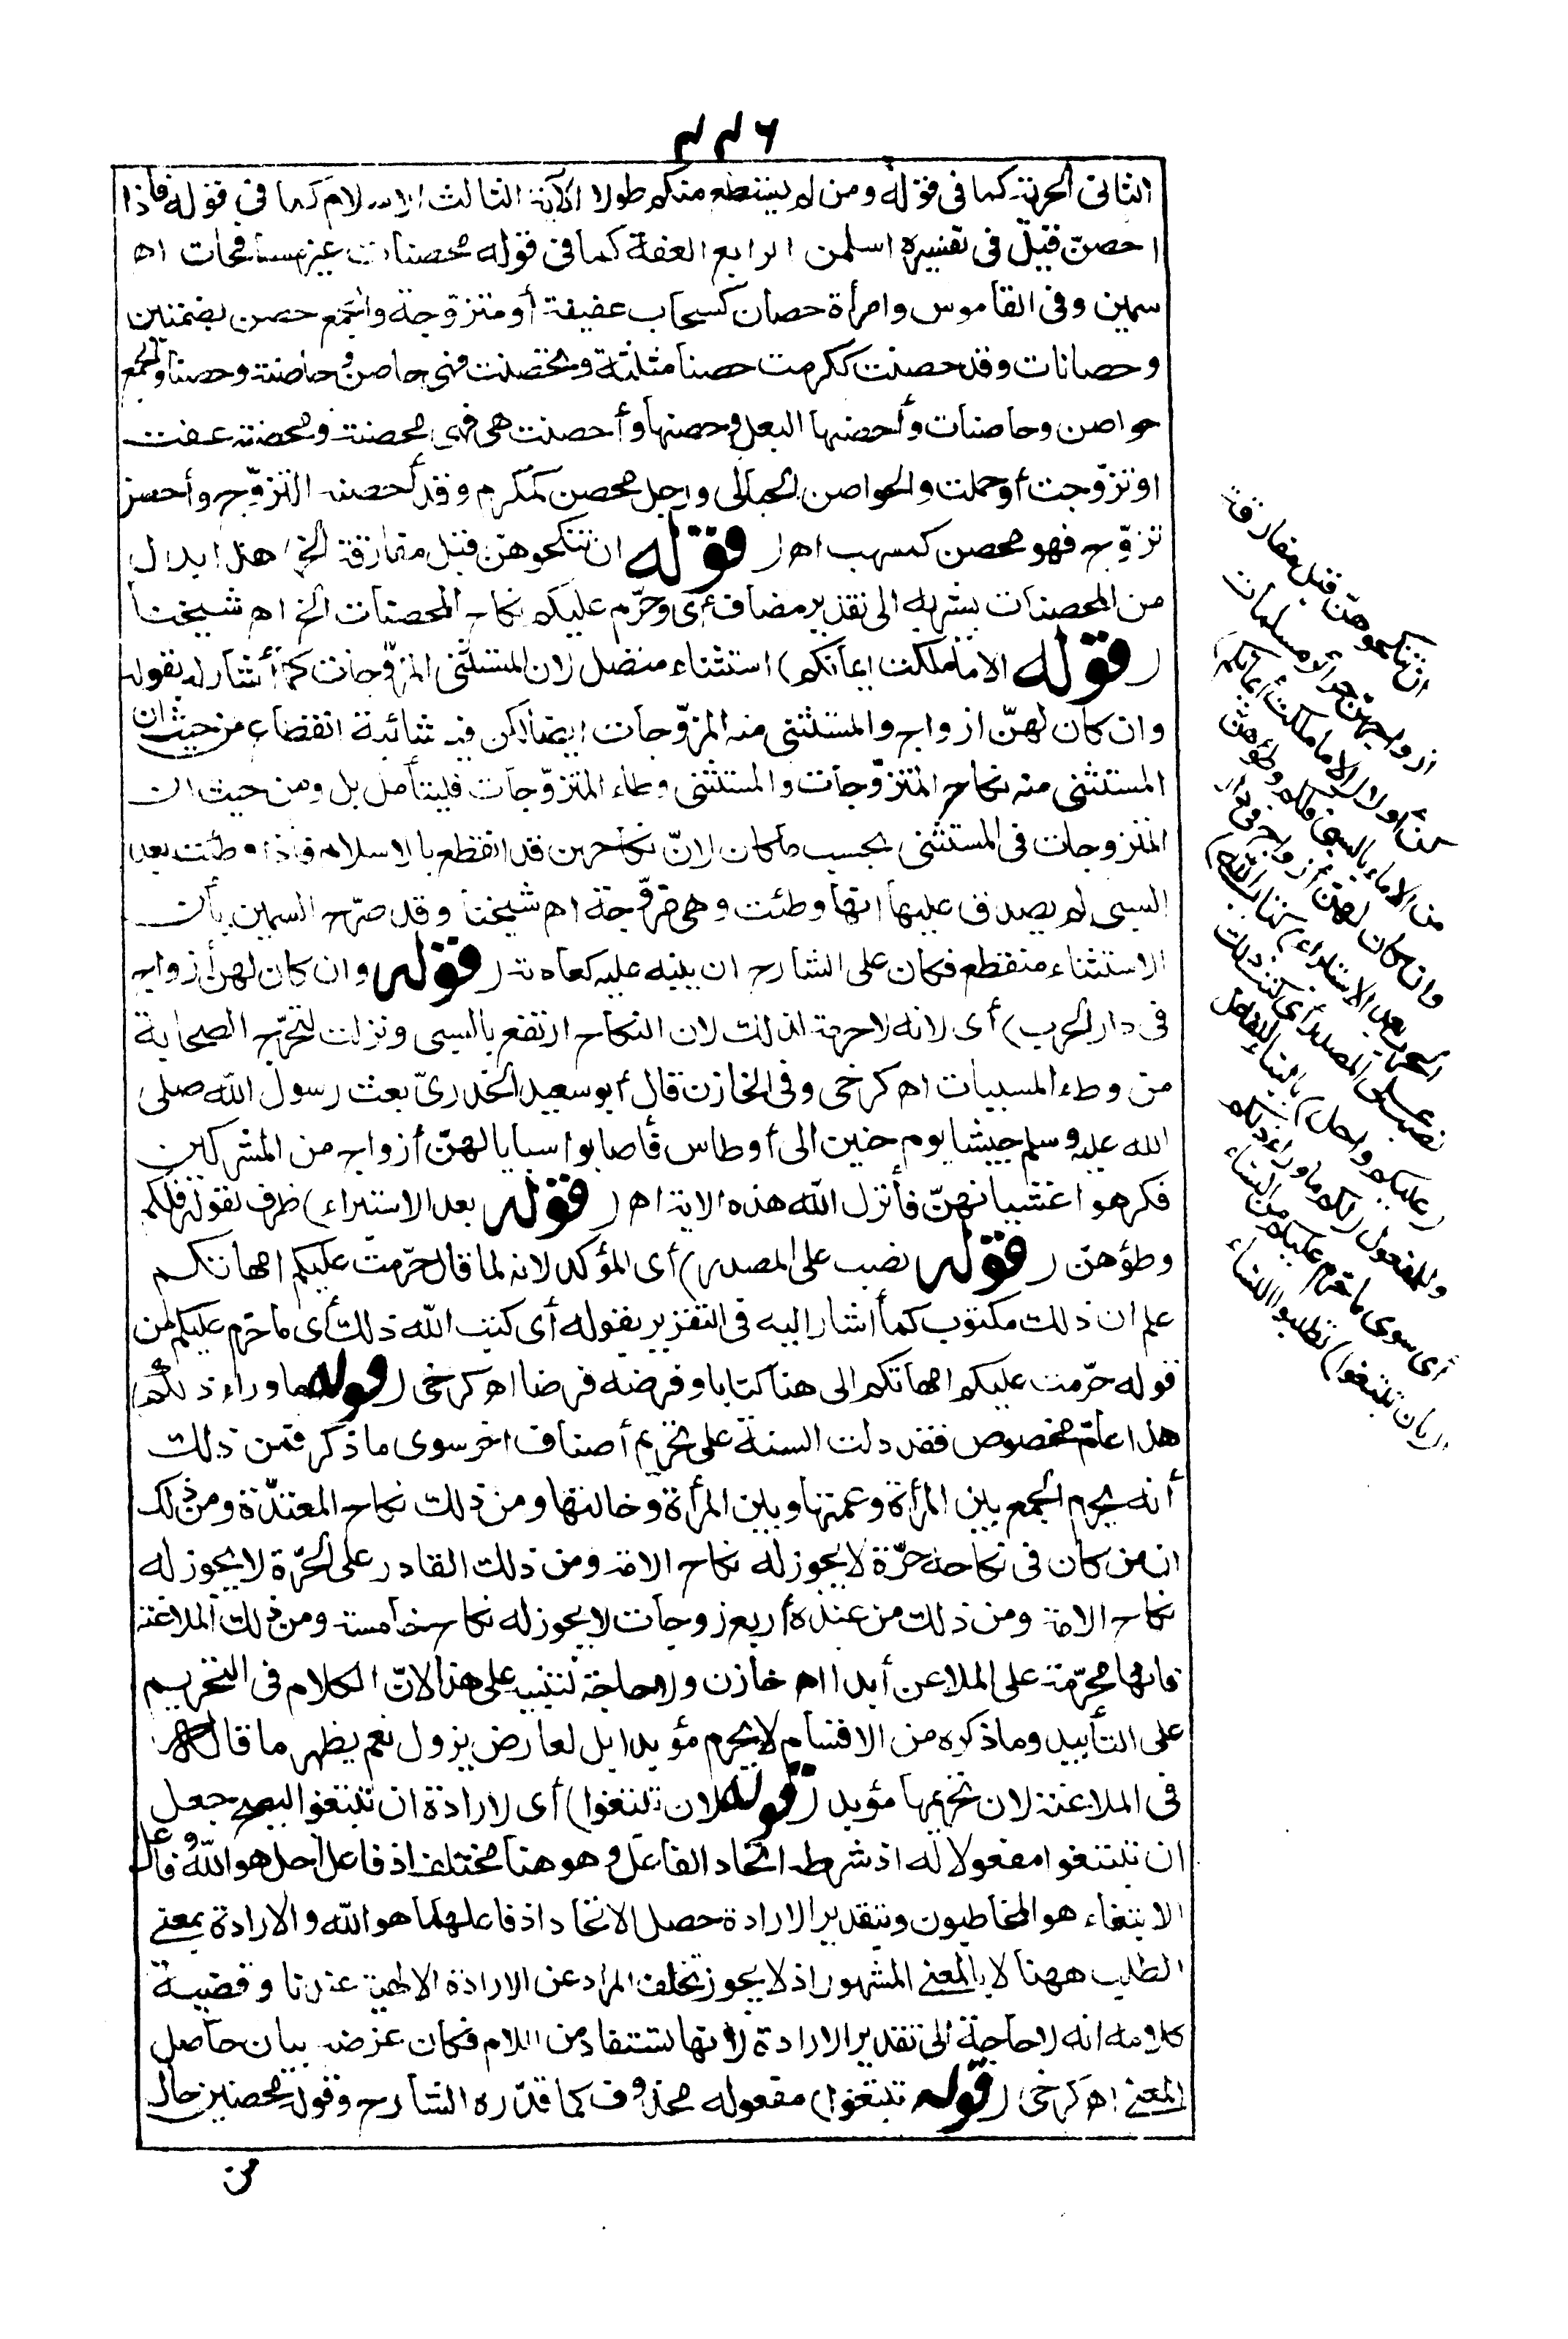 ٤٤٦
الثانى الحرية كما فى قوله ومن لم يستطع منكم طولا الآية الثالث الاسلام كما فى قوله فاذا
احصنّ قيل فى تفسيره اسلمن الرابع العفة كما فى قوله محصنات غير مسافحات اه
سمين وفى القاموس وامرأة حصان كسحاب عفيفة أو متزوّجة والجمع حصن بضمتين
وحصانات وقد حصنت ككرمت حصنا مثلثة وتحصنت فهى حاصن وحاصنة وحصناء والجمع
حواصن وحاصنات وأحصنها البعل وحصنها وأحصنت هى فهى محصنة ومحصنة عفت
او تزوّجت أو حملت والحواصن الحبالى ورجل محصن كمكرم وقد أحصنه التزوّج وأحصن
تزوّج فهو محصن كمسهب اه (قوله ان تنكحوهنّ قبل مفارقة الخ) هذا ابدال
من المحصنات يشير به الى تقدير مضاف أى وحرّم عليكم نكاح المحصنات الخ اه شيخنا
(قوله الا ما ملكت ايمانكم) استثناء متصل لان المستثنى المزوّجات كما أشار له بقوله
وان كان لهنّ ازواج والمستثنى منه المزوّجات ايضا لكن فيه شائبة انقطاع من حيث ان
المستثنى منه نكاح المتزوّجات والمستثنى وطء المتزوّجات فليتأمل بل ومن حيث ان
المتزوجات فى المستثنى بحسب ما كان لانّ نكاحهن قد انقطع بالاسلام فاذا وطئت بعد
السبى لم يصدق عليها انها وطئت وهى مزوّجة اه شيخنا وقد صرّح السمين بأن
الاستثناء منقطع فكان على الشارح ان ينبه عليه كعادته (قوله وان كان لهنّ أزواج
فى دار الحرب) أى لانه لا حرمة لذلك لان النكاح ارتفع بالسبى ونزلت لتحرّج الصحابة
من وطء المسبيات اه كرخى وفى الخازن قال أبو سعيد الخدرىّ بعث رسول الله صلى
الله عليه وسلم جيشا يوم حنين الى أوطاس فأصابوا سبايا لهنّ أزواج من المشركين
فكرهوا غشيانهنّ فأنزل الله هذه الاية اه (قوله بعد الاستبراء) ظرف لقوله فلكم
وطؤهنّ (قوله نصب على المصدر) أى المؤكد لانه لما قال حرّمت عليكم امهاتكم
علم ان ذلك مكتوب كما أشار اليه فى التقرير بقوله أى كتب الله ذلك أى ما حرّم عليكم من
قوله حرّمت عليكم امهاتكم الى هنا كتابا وفرضه فرضا اه كرخى (قوله ما وراء ذلكم)
هذا عامّ مخصوص فقد دلت السنة على تحريم أصناف اخر سوى ما ذكر فمن ذلك
أنه يحرم الجمع بين المرأة وعمتها وبين المرأة وخالتها ومن ذلك نكاح المعتدّة ومن ذلك
ان من كان فى نكاحه حرّة لا يجوز له نكاح الامة ومن ذلك القادر على الحرّة لا يجوز له
نكاح الامة ومن ذلك من عنده أربع زوجات لا يجوز له نكاح خامسة ومن ذلك الملاعنة
فانها محرّمة على الملاعن أبدا اه خازن ولا حاجة لتنبيه على هذا لانّ الكلام فى التحريم
على التأبيد وما ذكره من الاقسام لا يحرم مؤبدا بل لعارض يزول نعم يظهر ما قاله
فى الملاعنة لان تحريمها مؤبد (قوله لان تبتغوا) أى لارادة ان تبتغوا ليصح جعل
ان تبتغوا مفعولا له اذ شرطه اتحاد الفاعل وهو هنا مختلف اذ فاعل أحل هو الله وفاعل
الابتغاء هو المخاطبون وبتقدير الارادة حصل الاتحاد اذ فاعلهما هو الله والارادة بمعنى
الطلب ههنا لا بالمعنى المشهور اذ لا يجوز تخلف المراد عن الارادة الالهية عندنا وقضية
كلامه انه لا حاجة الى تقدير الارادة لانها تستفاد من اللام فكان غرضه بيان حاصل
المعنى اه كرخى (قوله تبتغوا) مفعوله محذوف كما قدّره الشارح وقوله محصنين حال
من
ان تنكحوهنّ قبل مفارقة
ازواجهنّ حرائر مسلمات
كنّ أو لا (الا ما ملكت أيمانكم)
من الاماء بالسبى فلكم وطؤهنّ
وان كان لهنّ أزواج فى دار
الحرب بعد الاستبراء (كتاب الله)
نصب على المصدر أى كتب ذلك
(عليكم وأحل) بالبناء للفاعل
وللمفعول (لكم ما وراء ذلكم)
أى سوى ما حرّم عليكم من النساء
(ان تبتغوا) تطلبوا النساء